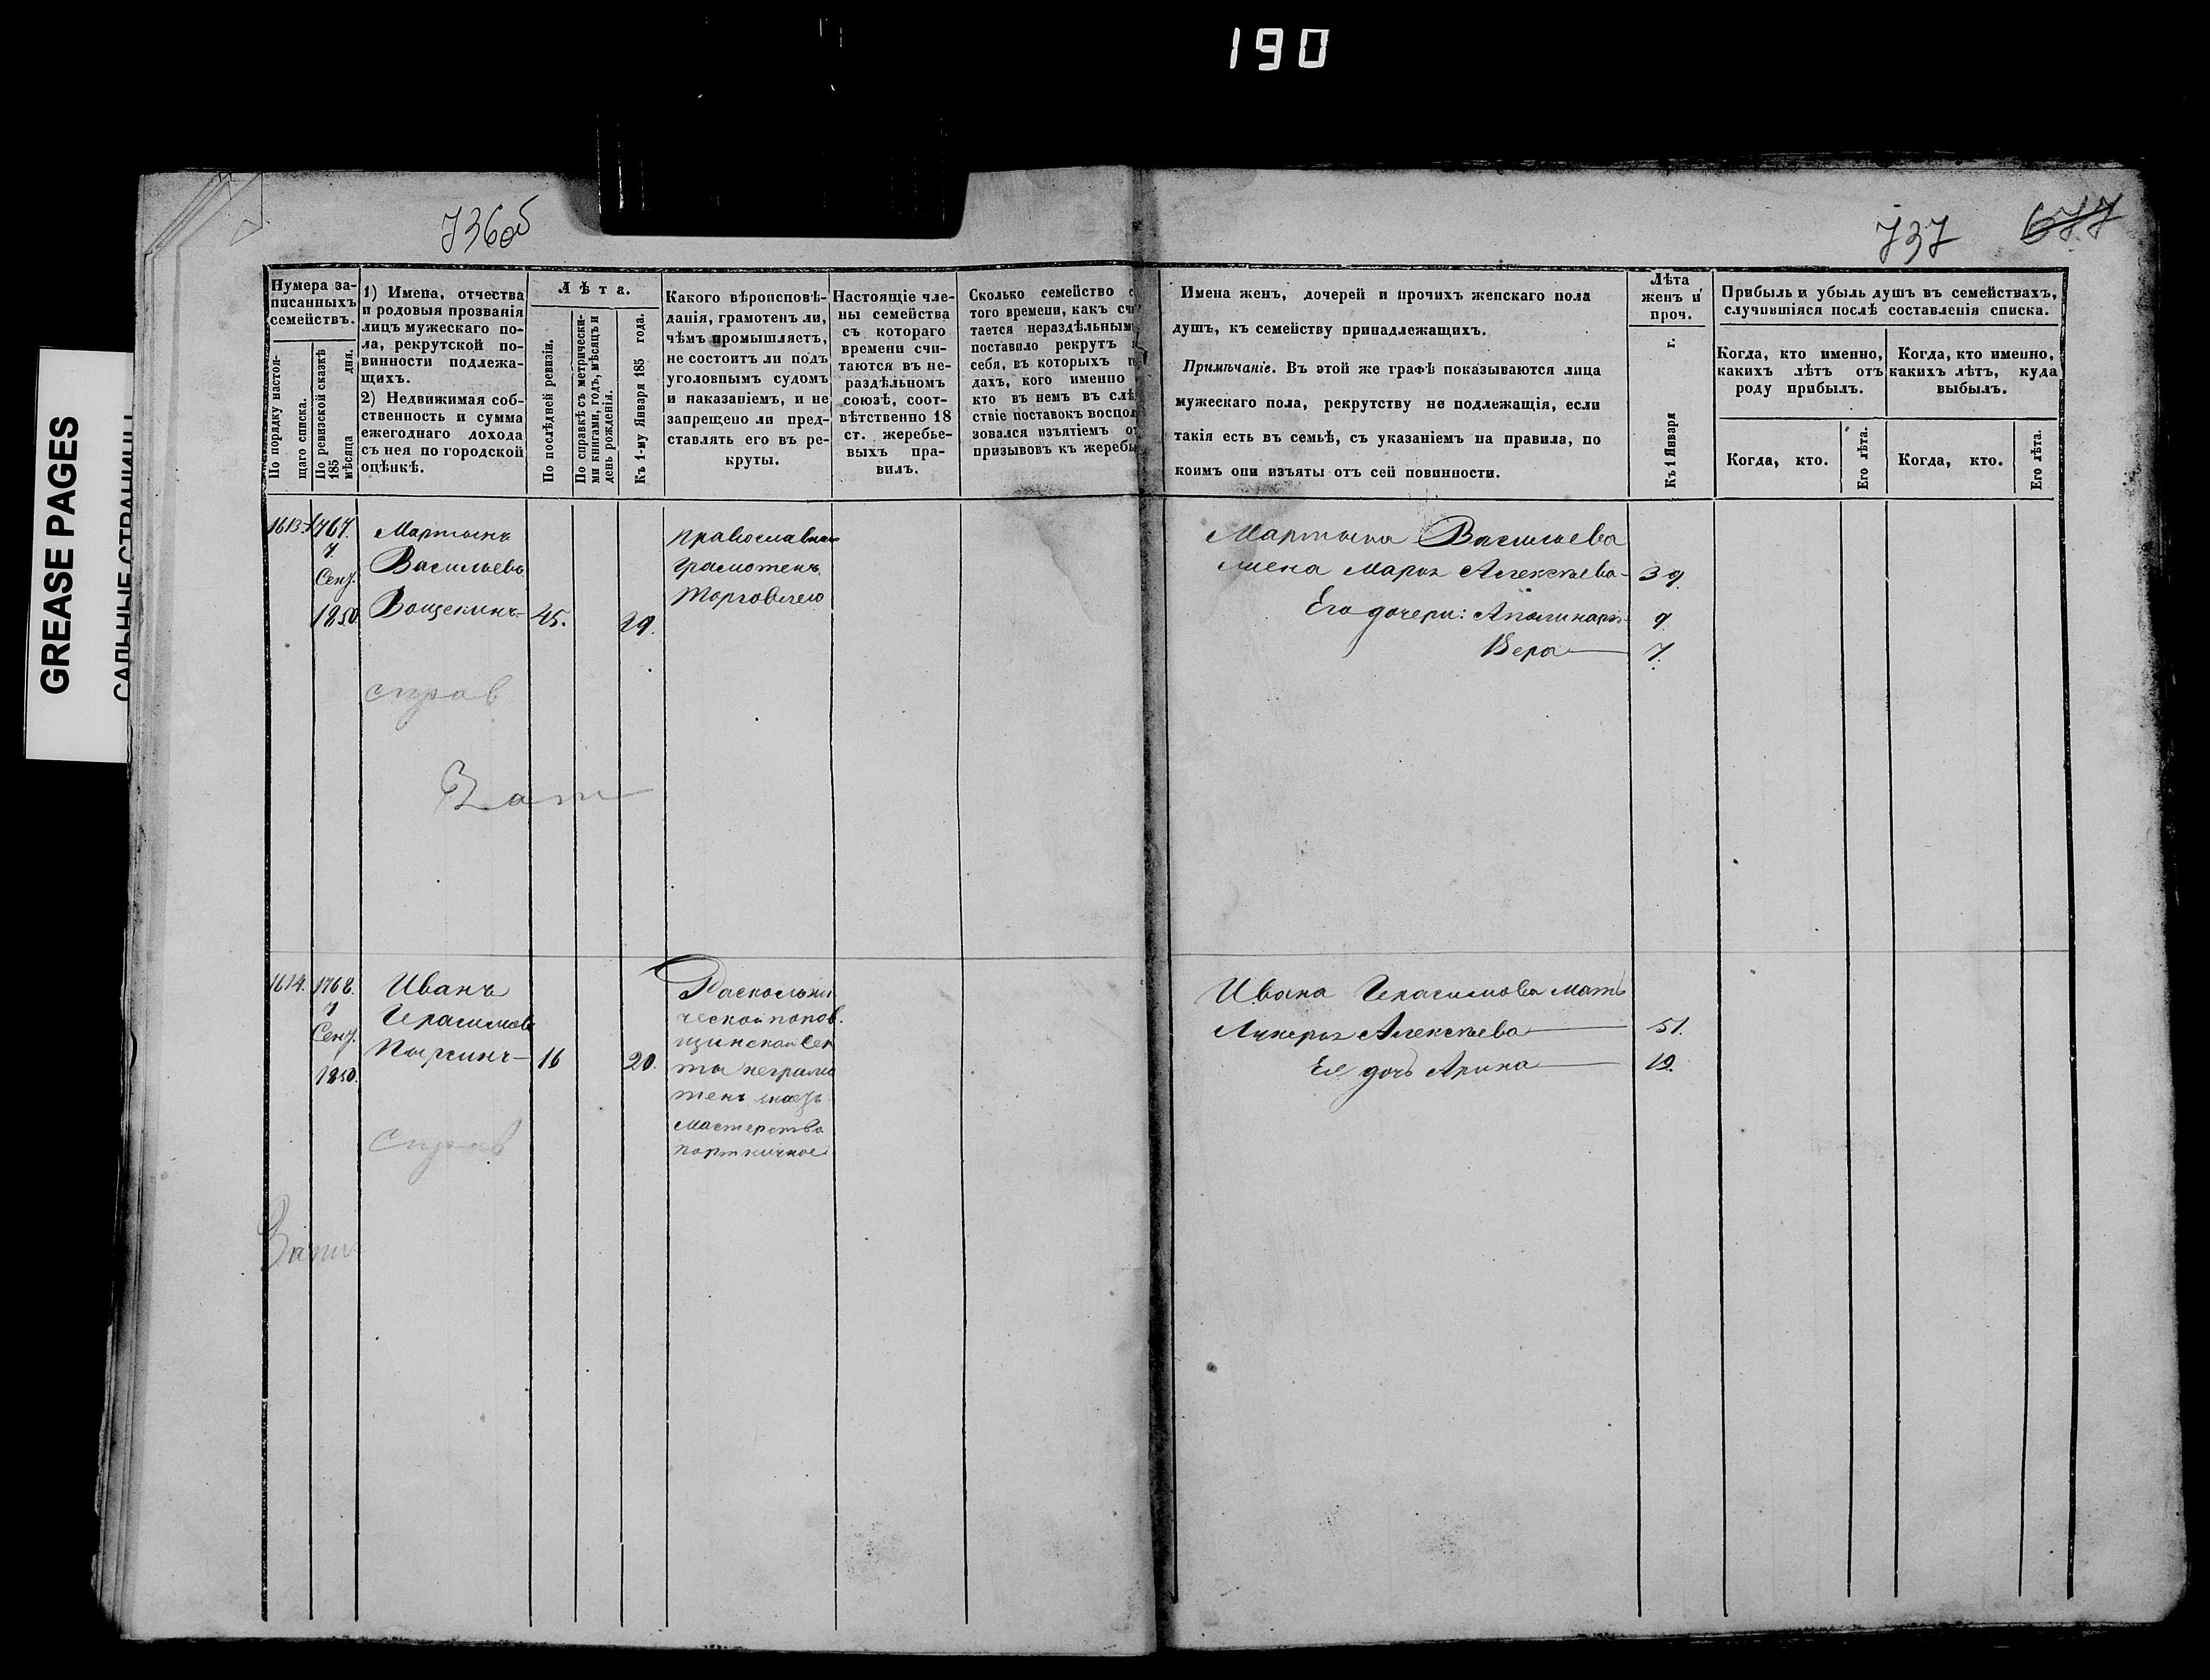 190
GREASE PAGES
САЛЬНЫЕ СТРАНИЦЫ
736об
737
677
Нумера за-
писанныхъ
семействъ.
По порядку настоя-
щаго списка.
По ревизской сказкѣ
185 дня.
мѣсяца
1) Имена, отчества
и родовыя прозванія
лицъ мужескаго по-
ла, рекрутской по-
винности подлежа-
щихъ.
2) Недвижимая соб-
ственность и сумма
ежегоднаго дохода
съ нея по городской
оцѣнкѣ.
Лѣта.
По послѣдней ревизіи.
По справкѣ съ метрически-
ми книгами, годъ, мѣсяцъ и
день рожденія.
Къ 1-му Января 185 года.
Какого вѣроисповѣ-
данія, грамотенъ ли,
чѣмъ промышляетъ,
не состоитъ ли подъ
уголовнымъ судомъ
и наказаніемъ, и не
запрещено ли пред-
ставлять его въ ре-
круты.
Настоящіе чле-
ны семейства
съ котораго
времени счи-
таются въ не-
раздѣльномъ
союзѣ, соот-
вѣтственно 18
ст. жеребье-
выхъ пра-
вилъ.
Сколько семейство с
того времени, какъ сч
тается нераздѣльным
поставило рекрутъ
себя, въ которыхъ г
дахъ, кого именно
кто въ немъ въ слѣ
ствіе поставокъ воспол
зовался изъятіемъ о
призывовъ къ жеребь
Имена женъ, дочерей и прочихъ женскаго пола
душъ, къ семейству принадлежащихъ.
Примѣчаніе. Въ этой же графѣ показываются лица
мужескаго пола, рекрутству не подлежащія, если
такія есть въ семьѣ, съ указаніемъ на правила, по
коимъ они изъяты отъ сей повинности.
Лѣта
женъ и
проч.
Къ 1 Января г.
Прибыль и убыль душъ въ семействахъ,
случившіяся послѣ составленія списка.
Когда, кто именно,
какихъ лѣтъ отъ
роду прибылъ.
Когда, кто именно,
какихъ лѣтъ, куда
выбылъ.
Когда, кто.
Его лѣта.
Когда, кто.
Его лѣта.
1613 1767. Мартынъ православнаго
7 Васильевъ грамотенъ
Сент. торговлею
1850 Вощекинъ 45. 49.
справ
Мартына Васильева
жена Марья Алексѣева 39
Его дочери: Апалинарія 9
Вера 7.
1614. 1768. Иванъ Раскольни
7 Герасимовъ ческой попов.
Сент. щинской сек
1850. 16 20. ты неграмо
тенъ
мастерство
портничное
справ
Ивана Герасимова мать
Лукерья Алексѣева 51.
Ея дочь Арина 19.